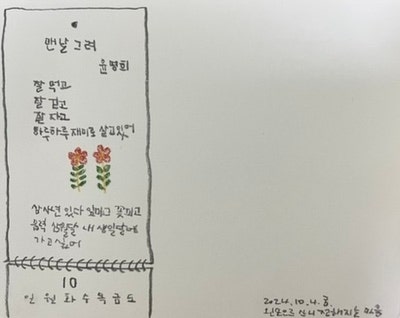 맨날 그려
윤명희
잘 먹고
잘 걷고
잘 자고
하루하루 재미로 살고있어
삼사년 있다 꽃피고
음력 내 생일달에
가고싶어
10
일 월 화 수 목 금 토
2024.10.4.
마음